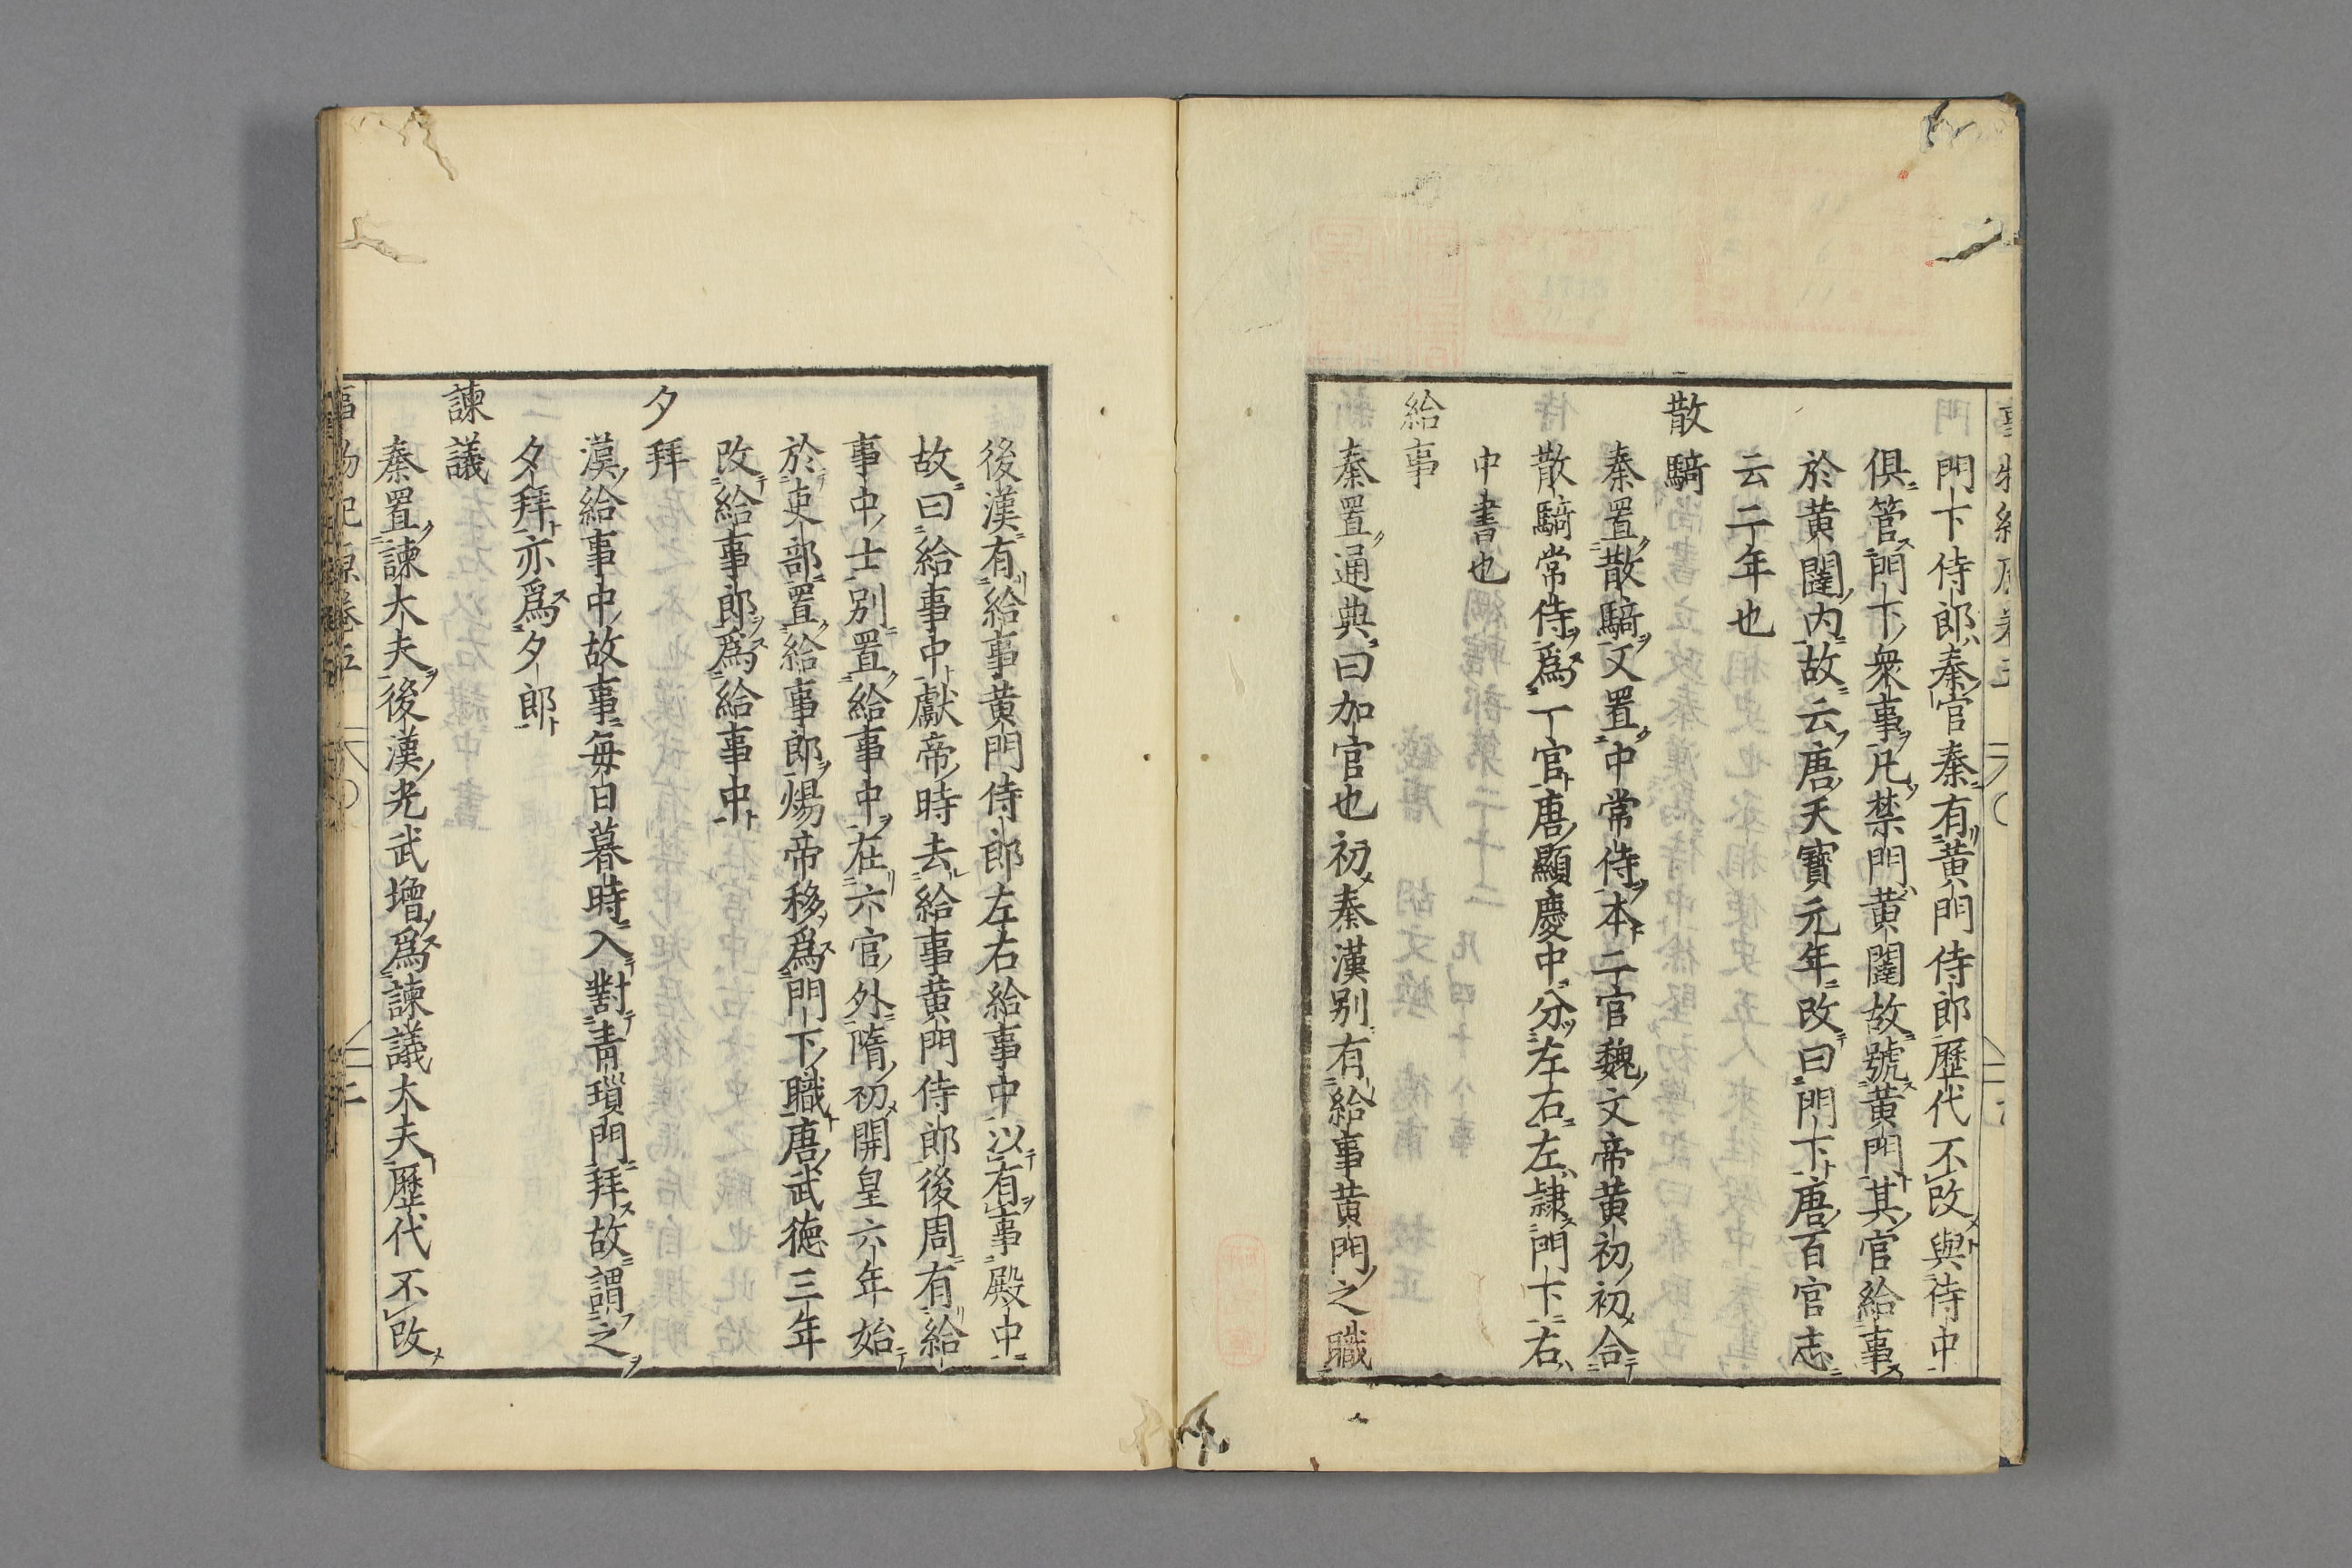 門下侍郎秦官秦有黄門侍郎歴代不改與侍中
俱管門下衆事凡禁門黄闥故號黄門其官給事
於黄闥内故云唐天寳元年改曰門下唐百官志
云二年也
散騎
秦置散騎又置中常侍本二官魏文帝黄初初合
散騎常侍爲一官唐顯慶中分左右左隷門下右
中書也
給事
秦置通典曰加官也初秦漢别有給事黄門之職
後漢有給事黄門侍郎左右給事中以有事殿中
故曰給事中獻帝時去給事黄門侍郎後周有給
事中士别置給事中在六官外隋初開皇六年始
於吏部置給事郎煬帝移爲門下職唐武徳三年
改給事郎爲給事中
夕拜
漢給事中故事毎日暮時入對青瑣門拜故謂之
夕拜亦爲夕郎
諫議
秦置諫大夫後漢光武增爲諫議大夫歴代不改
事物紀原卷五
二